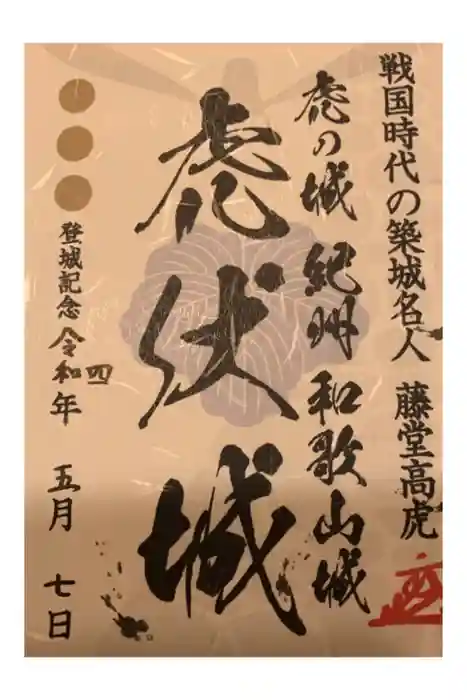 戦国時代の築城名人 藤堂高虎
虎の城 紀州 和歌山城
虎伏城
登城記念 令和四年 五月 七日